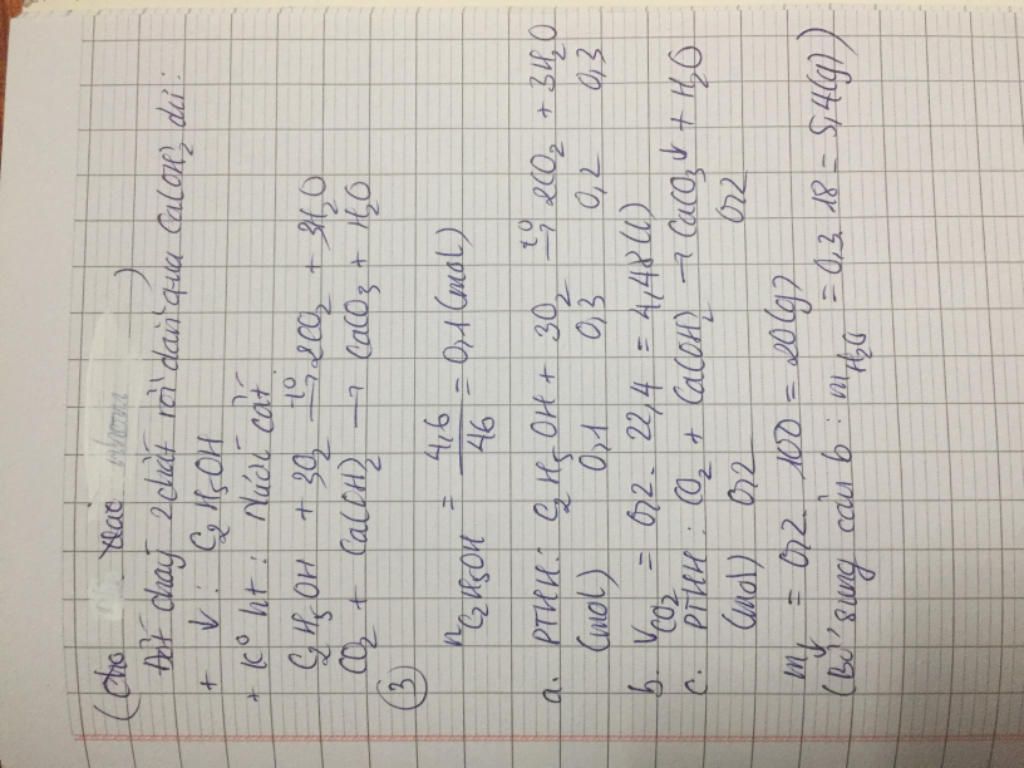 (Cho
Đốt cháy 2 chất rồi dẫn qua Ca(OH)2 dư:
+ ↓ : C2H5OH
+ K° ht : Nước cất
C2H5OH + 3O2 –t°→ 2CO2 + 3H2O
CO2 + Ca(OH)2 → CaCO3 + H2O
③
nC2H5OH = 4,6/46 = 0,1 (mol)
a. PTHH: C2H5OH + 3O2 –t°→ 2CO2 + 3H2O
(mol) 0,1 0,3 0,2 0,3
b. VCO2 = 0,2 . 22,4 = 4,48 (l)
c. PTHH : CO2 + Ca(OH)2 → CaCO3↓ + H2O
(mol) 0,2 0,2
m↓ = 0,2 . 100 = 20 (g)
(Bổ sung câu b : mH2O = 0,3 . 18 = 5,4 (g))